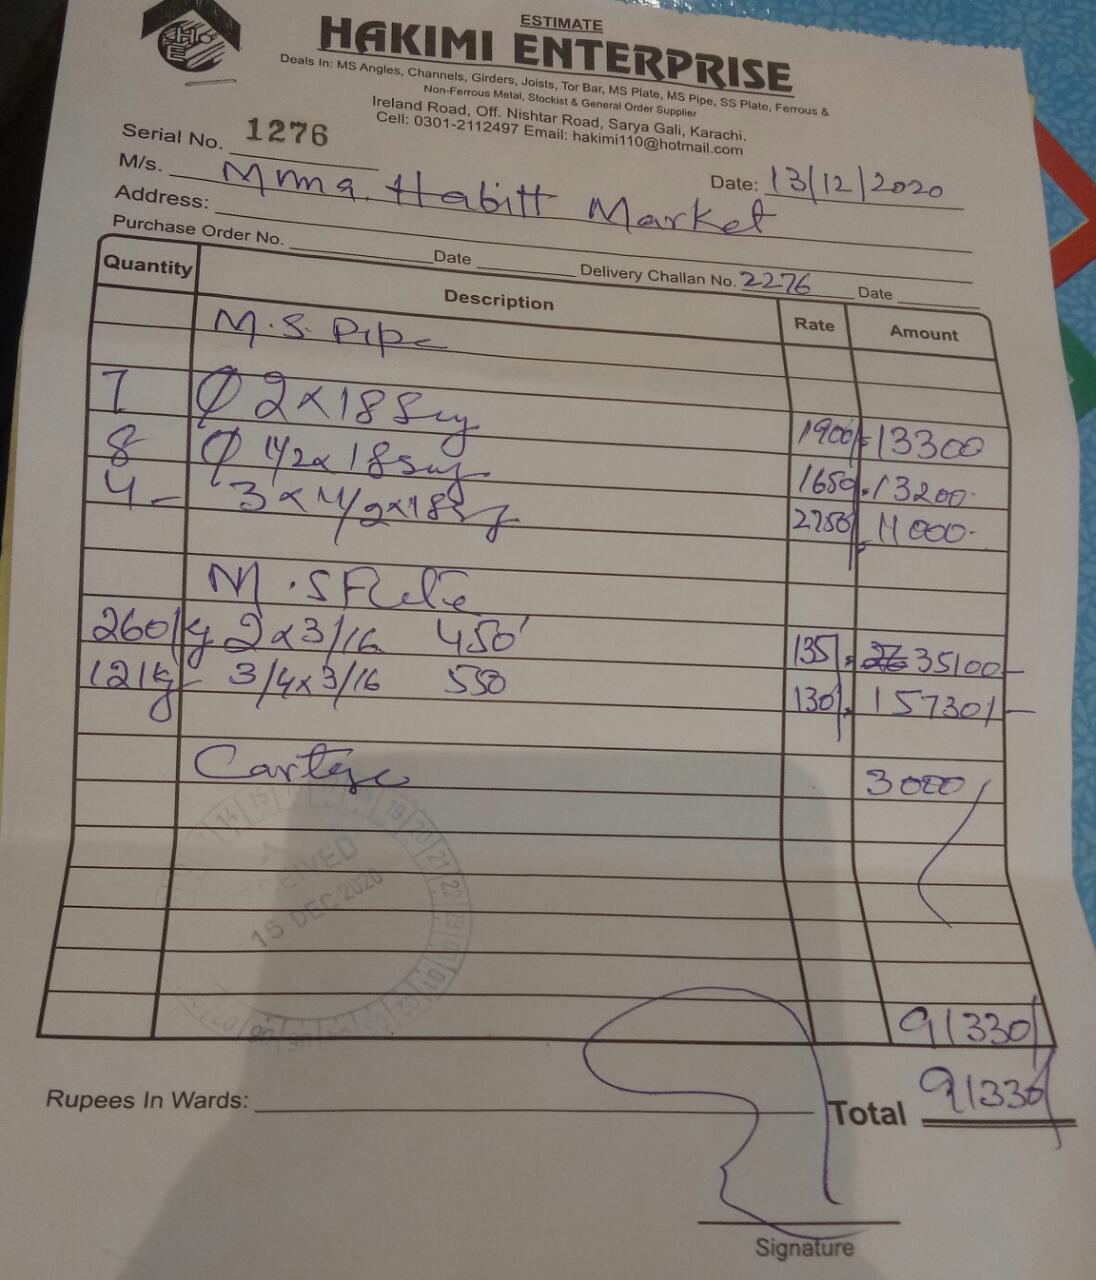 ESTIMATE
HAKIMI ENTERPRISE
Deals In: MS Angles, Channels, Girders, Joists, Tor Bar, MS Plate, MS Pipe, SS Plate, Ferrous &
Non-Ferrous Metal, Stockist & General Order Supplier
Ireland Road, Off. Nishtar Road, Sarya Gali, Karachi.
Cell: 0301-2112497 Email: hakimi110@hotmail.com
Serial No. 1276
M/s. Mma. Habitt Market Date: 13/12/2020
Address:
Purchase Order No. Date Delivery Challan No. 2276 Date
Quantity Description Rate Amount
M.S. Pipe
7 Ø 2 x 18 1900/= 13300
8 Ø 1 1/2 x 18 1650 13200
4 - 3 x 1 1/2 x 18 2750 11000
M.S
260kg 2 x 3/16 450' 135/ 35100-
121kg - 3/4 x 3/16 550 130/ 15730/-
Cartage 3000/
RECEIVED
15 DEC 2020
91330/
Rupees In Wards: Total 91330/
Signature